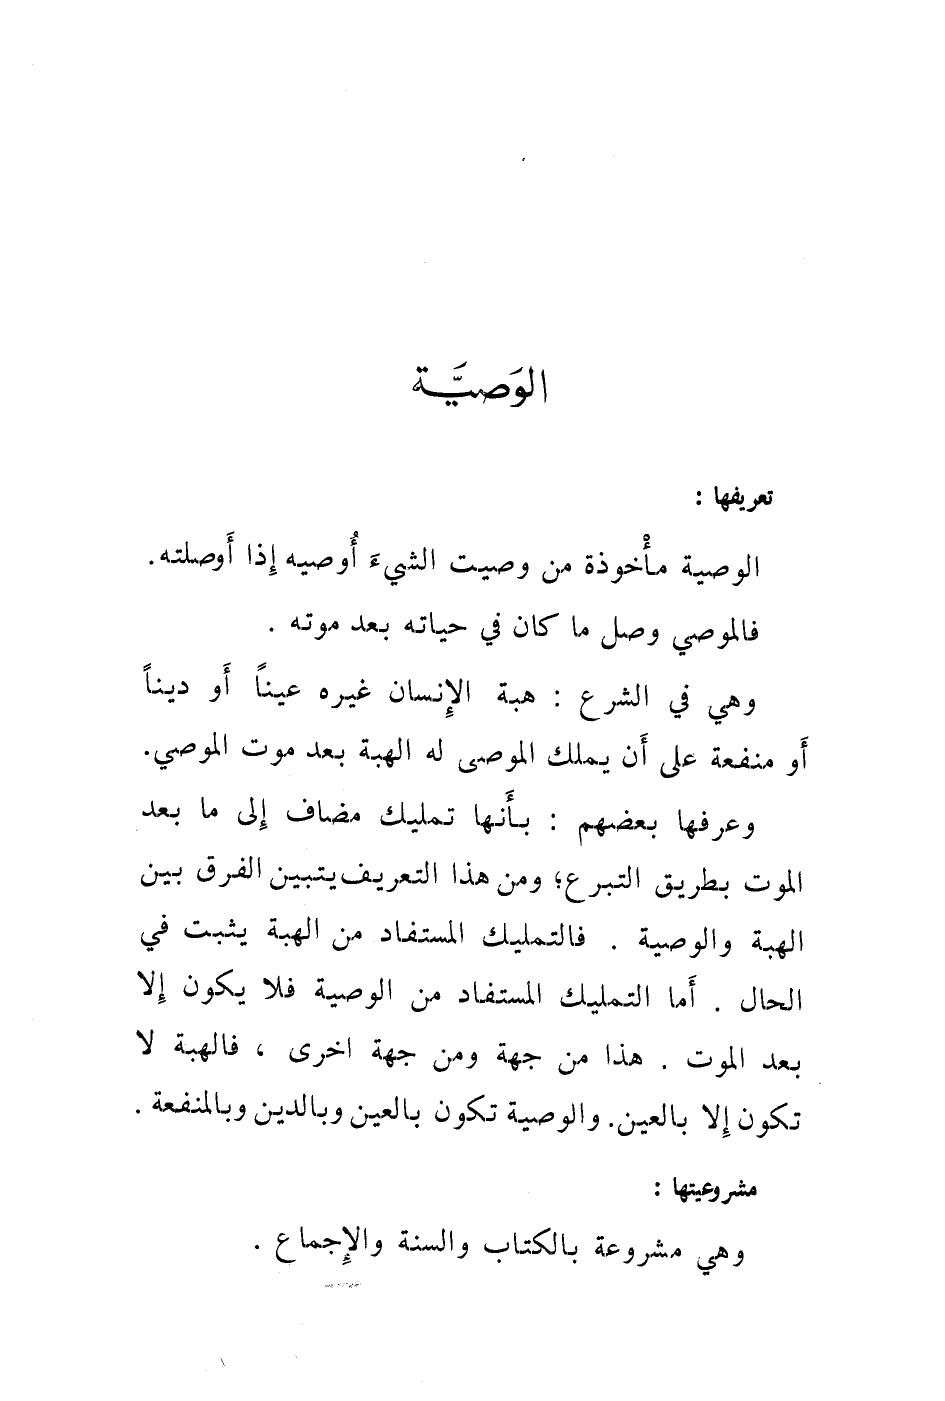 الوَصيَّة
تعريفها :
الوصية مأْخوذة من وصيت الشيءَ أُوصيه إِذا أَوصلته.
فالموصي وصل ما كان في حياته بعد موته .
وهي في الشرع : هبة الإِنسان غيره عيناً أَو ديناً
أَو منفعة على أَن يملك الموصى له الهبة بعد موت الموصي.
وعرفها بعضهم : بأَنها تمليك مضاف إِلى ما بعد
الموت بطريق التبرع؛ ومن هذا التعريف يتبين الفرق بين
الهبة والوصية . فالتمليك المستفاد من الهبة يثبت في
الحال . أَما التمليك المستفاد من الوصية فلا يكون إِلا
بعد الموت . هذا من جهة ومن جهة اخرى ، فالهبة لا
تكون إِلا بالعين. والوصية تكون بالعين وبالدين وبالمنفعة .
مشروعيتها :
وهي مشروعة بالكتاب والسنة والإِجماع .